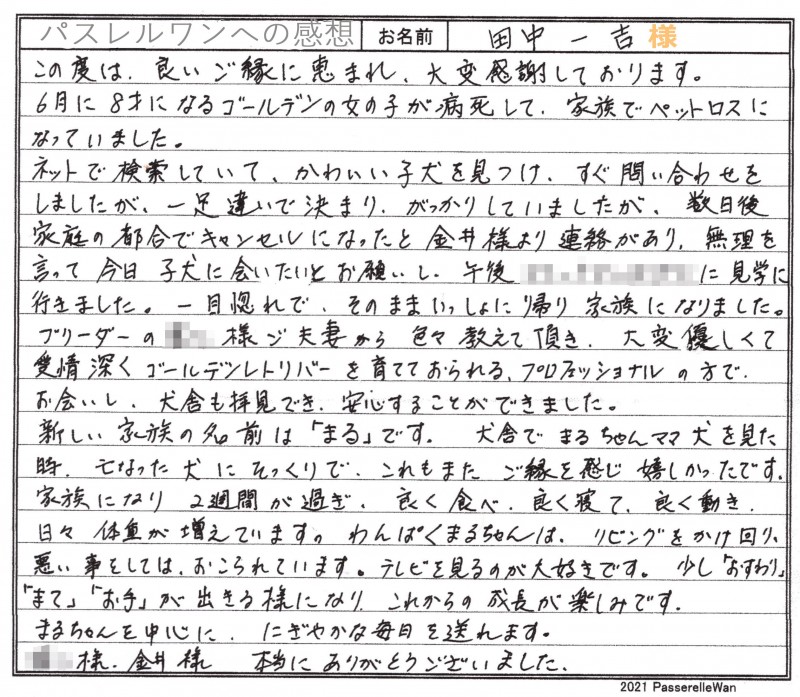 パスレルワンへの感想 お名前 田中一吉様
この度は、良いご縁に恵まれ、大変感謝しております。
6月に8才になるゴールデンの女の子が病死して、家族でペットロスに
なっていました。
ネットで検索していて、かわいい子犬を見つけ、すぐ問い合わせを
しましたが、一足違いで決まり、がっかりしていましたが、数日後
家庭の都合でキャンセルになったと金井様より連絡があり、無理を
言って今日子犬に会いたいとお願いし、午後 に見学に
行きました。一目惚れで、そのままいっしょに帰り家族になりました。
ブリーダーの 様ご夫妻から色々教えて頂き、大変優しくて
愛情深くゴールデンレトリバーを育てておられる、プロフェッショナルの方で、
お会いし、犬舎も拝見でき、安心することができました。
新しい家族の名前は「まる」です。犬舎でまるちゃんママ犬を見た
時、亡なった犬にそっくりで、これもまたご縁を感じ嬉しかったです。
家族になり2週間が過ぎ、良く食べ、良く寝て、良く動き、
日々体重が増えています。わんぱくまるちゃんは、リビングをかけ回り、
悪い事をしては、おこられています。テレビを見るのが大好きです。少し「おすわり」
「まて」「お手」が出きる様になり、これからの成長が楽しみです。
まるちゃんを中心に、にぎやかな毎日を送れます。
様、金井様 本当にありがとうございました。
2021 PasserelleWan